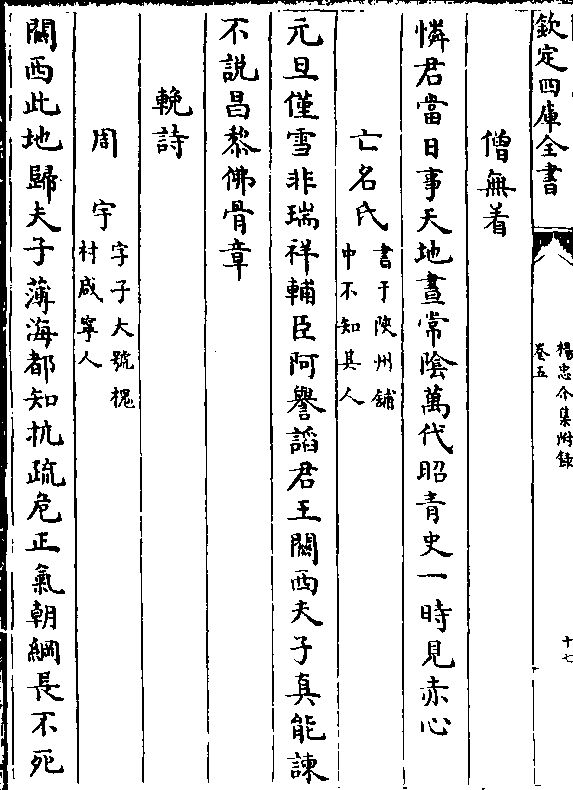 欽定四庫全書
楊忠介集附錄
卷五
十七
僧無着
憐君當日事天地晝常陰萬代昭青史一時見赤心
亡名氏書于陜州舖
中不知其人
元旦僅雪非瑞祥輔臣阿譽諂君王關西夫子真能諫
不說昌黎佛骨章
輓詩
周宇字子大號槐
村咸寧人
關西此地歸夫子薄海都知抗疏危正氣朝綱長不死